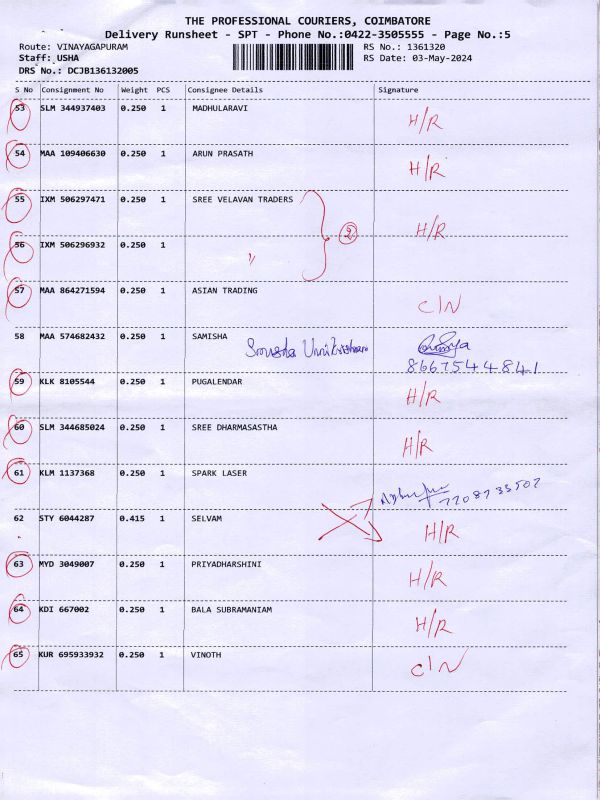 THE PROFESSIONAL COURIERS, COIMBATORE
Delivery Runsheet - SPT - Phone No.:0422-3505555 - Page No.:5
Route: VINAYAGAPURAM RS No.: 1361320
Staff: USHA RS Date: 03-May-2024
DRS No.: DCJB136132005
S No Consignment No Weight PCS Consignee Details Signature
53 SLM 344937403 0.250 1 MADHULARAVI H/R
54 MAA 109406630 0.250 1 ARUN PRASATH H/R
55 IXM 506297471 0.250 1 SREE VELAVAN TRADERS
2 H/R
56 IXM 506296932 0.250 1 "
57 MAA 864271594 0.250 1 ASIAN TRADING C/N
58 MAA 574682432 0.250 1 SAMISHA
8667544841
59 KLK 8105544 0.250 1 PUGALENDAR H/R
60 SLM 344685024 0.250 1 SREE DHARMASASTHA H/R
61 KLM 1137368 0.250 1 SPARK LASER
7708733502
62 STY 6044287 0.415 1 SELVAM H/R
63 MYD 3049007 0.250 1 PRIYADHARSHINI H/R
64 KDI 667002 0.250 1 BALA SUBRAMANIAM H/R
65 KUR 695933932 0.250 1 VINOTH C/N